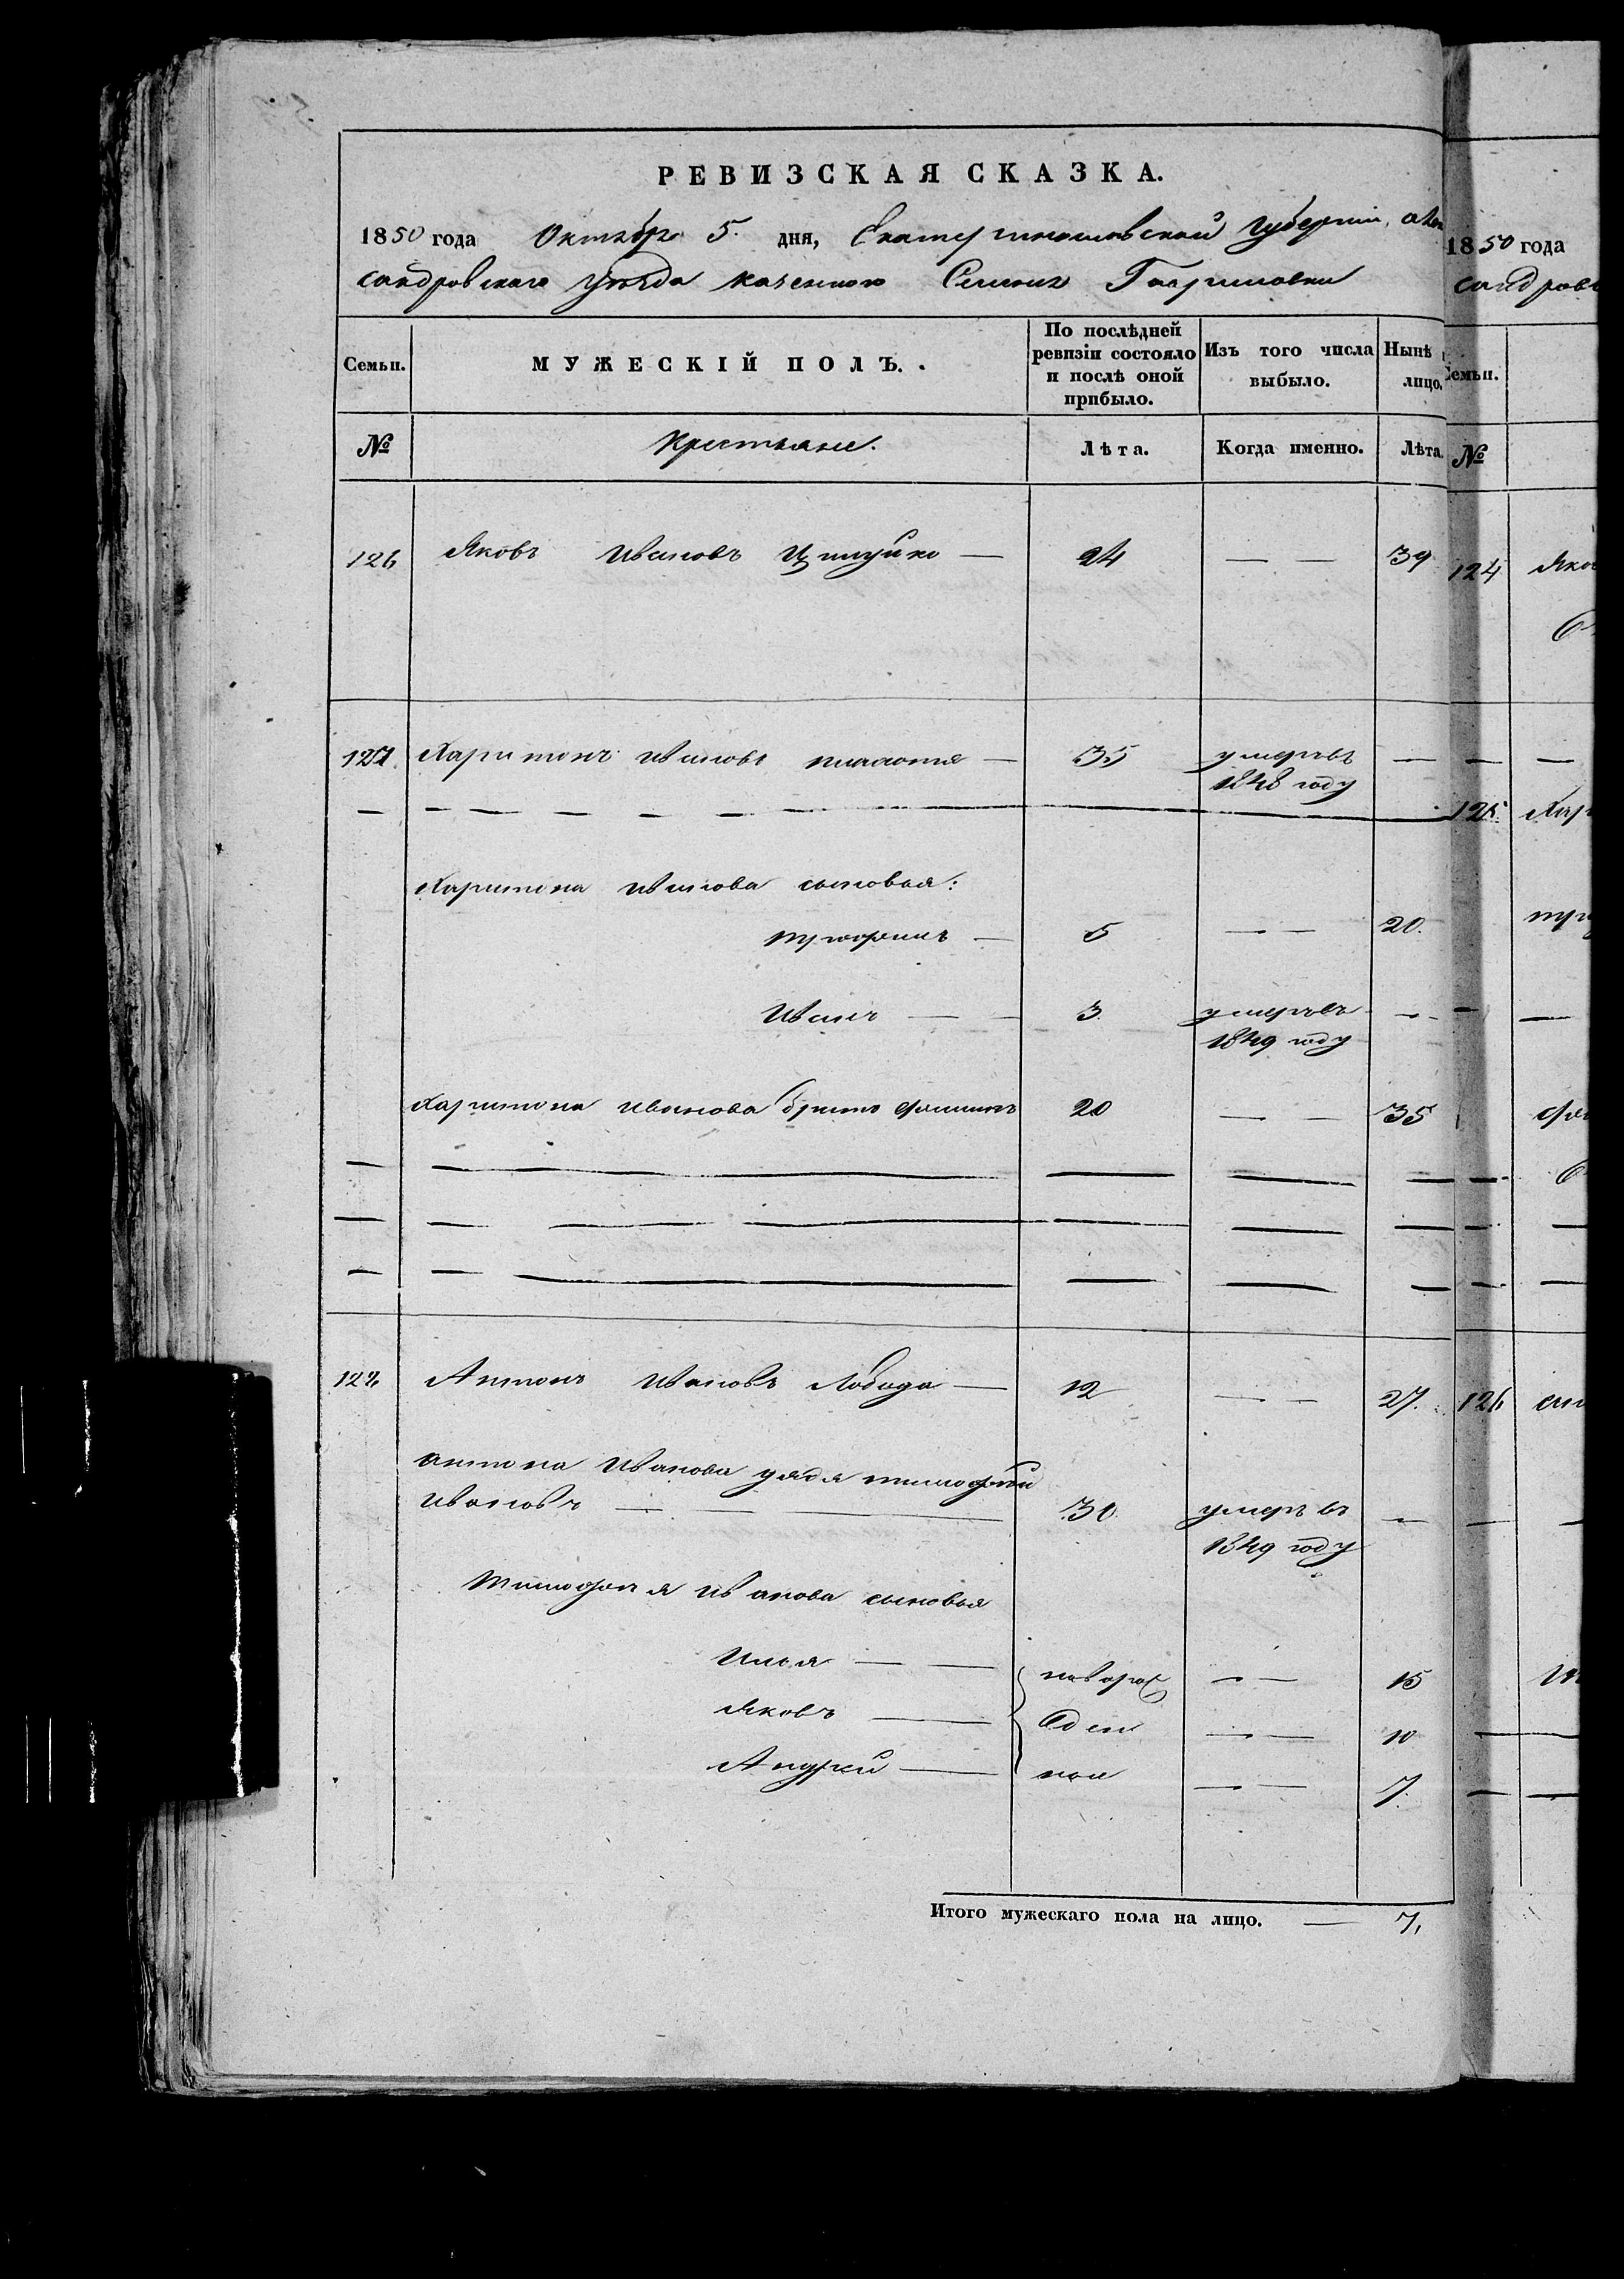 РЕВИЗСКАЯ СКАЗКА.
1850 года Октября 5. дня, Екатеринославской Губернии, Алек
сандровскаго уѣзда казенного Селения Гавриловки
Семьи. МУЖЕСКІЙ ПОЛЪ. По послѣдней ревизіи состояло и послѣ оной прибыло. Изъ того числа выбыло. Нынѣ лицо.
№ Крестьяне. Лѣта. Когда именно. Лѣта.
126 Яковъ Ивановъ — 24 — — 39
127. Харитонъ Ивановъ — 35 умеръ въ —
1848 году
Харитона Иванова сыновья:
Трофимъ — 5 — — 20.
Иванъ — — 3. умеръ въ — -
1849 году
Харитона Иванова братъ 20 — — 35
Антонъ Ивановъ Лобода — 12 — — 27.
Антона Иванова дядя Тимофей
Ивановъ — — 30. умеръ въ —
1849 году
Тимофея Иванова сыновья
Илья — — новорож — — 15
Яковъ — ден — — 10
Андрей — ные — — 7.
Итого мужескаго пола на лицо. — 7,
1850 года
сандров
Семьи.
№
124 Яков
125. Хар
126